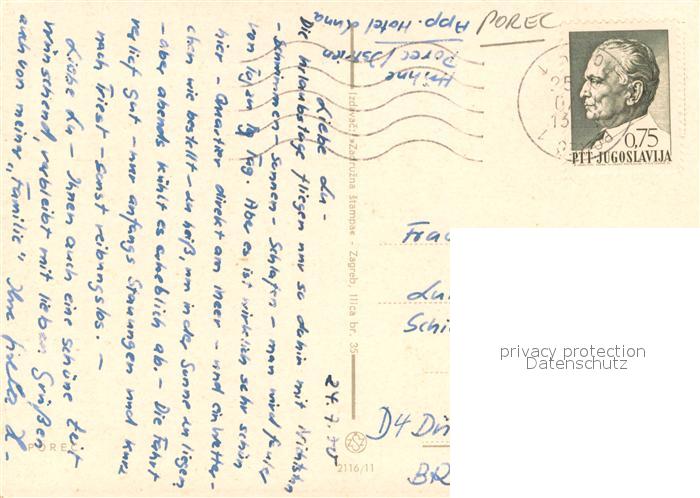 POREC
Höhne
Porec/Istrien
App. Hotel Luna
0,75
PTT JUGOSLAVIJA
24.7.70
Liebe Lu –
Die Urlaubstage fliegen nur so dahin mit Nichtstun
– Schwimmen – Sonnen – Schlafen – man wird fauler
von Tag zu Tag. Aber es ist wirklich sehr schön
hier – Quartier direkt am Meer – und ein Wetter-
chen wie bestellt – zu heiß, um in der Sonne zu liegen
– aber abends kühlt es erheblich ab. – Die Fahrt
verlief gut – nur anfangs Stauungen und kurz
nach Triest – sonst reibungslos –
Liebe Lu – Ihnen auch eine schöne Zeit
wünschend, verbleibt mit lieben Grüßen
auch von meiner „Familie"
Ihre
Izdavač: »Zadružna štampa« – Zagreb, Ilica br. 35
2116/11
POREČ
Frau
Lu
Schi
D4 Dü
BR
privacy protection
Datenschutz